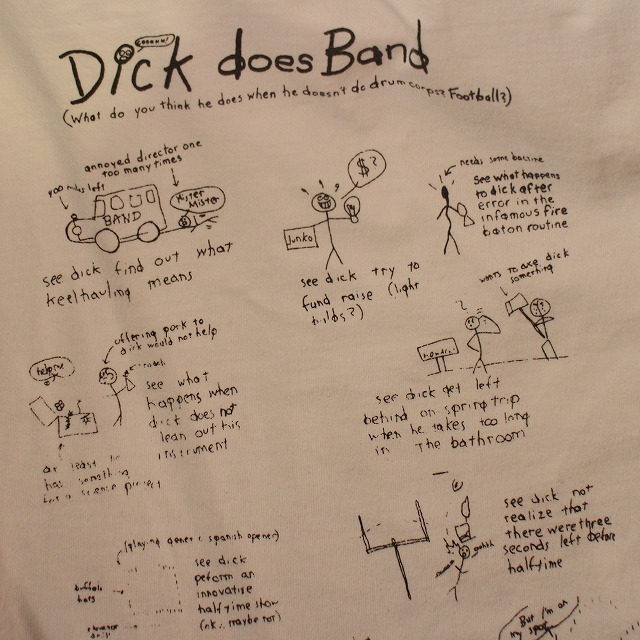 ooommm!
Dick does Band
(What do you think he does when he doesn't do drum corps? Football?)
annoyed director one
too many times
900 miles left
Mister
Mister
BAND
see dick find out what
keelhauling means
$?
Junko
see dick try to
fund raise (light
bulbs?)
needs some bactine
see what happens
to dick after
error in the
infamous fire
baton routine
offering pork to
dick would not help
help me
see what
happens when
dick does not
clean out his
instrument
at least he
has something
for a science project
wants to axe dick
something
?
see dick get left
behind on spring trip
when he takes too long
in the bathroom
see dick not
realize that
there were three
seconds left before
halftime
(playing generic spanish opener)
buffalo
hats
see dick
peform an
innovative
halftime show
(ok.. maybe not)
But I'm on
my spot